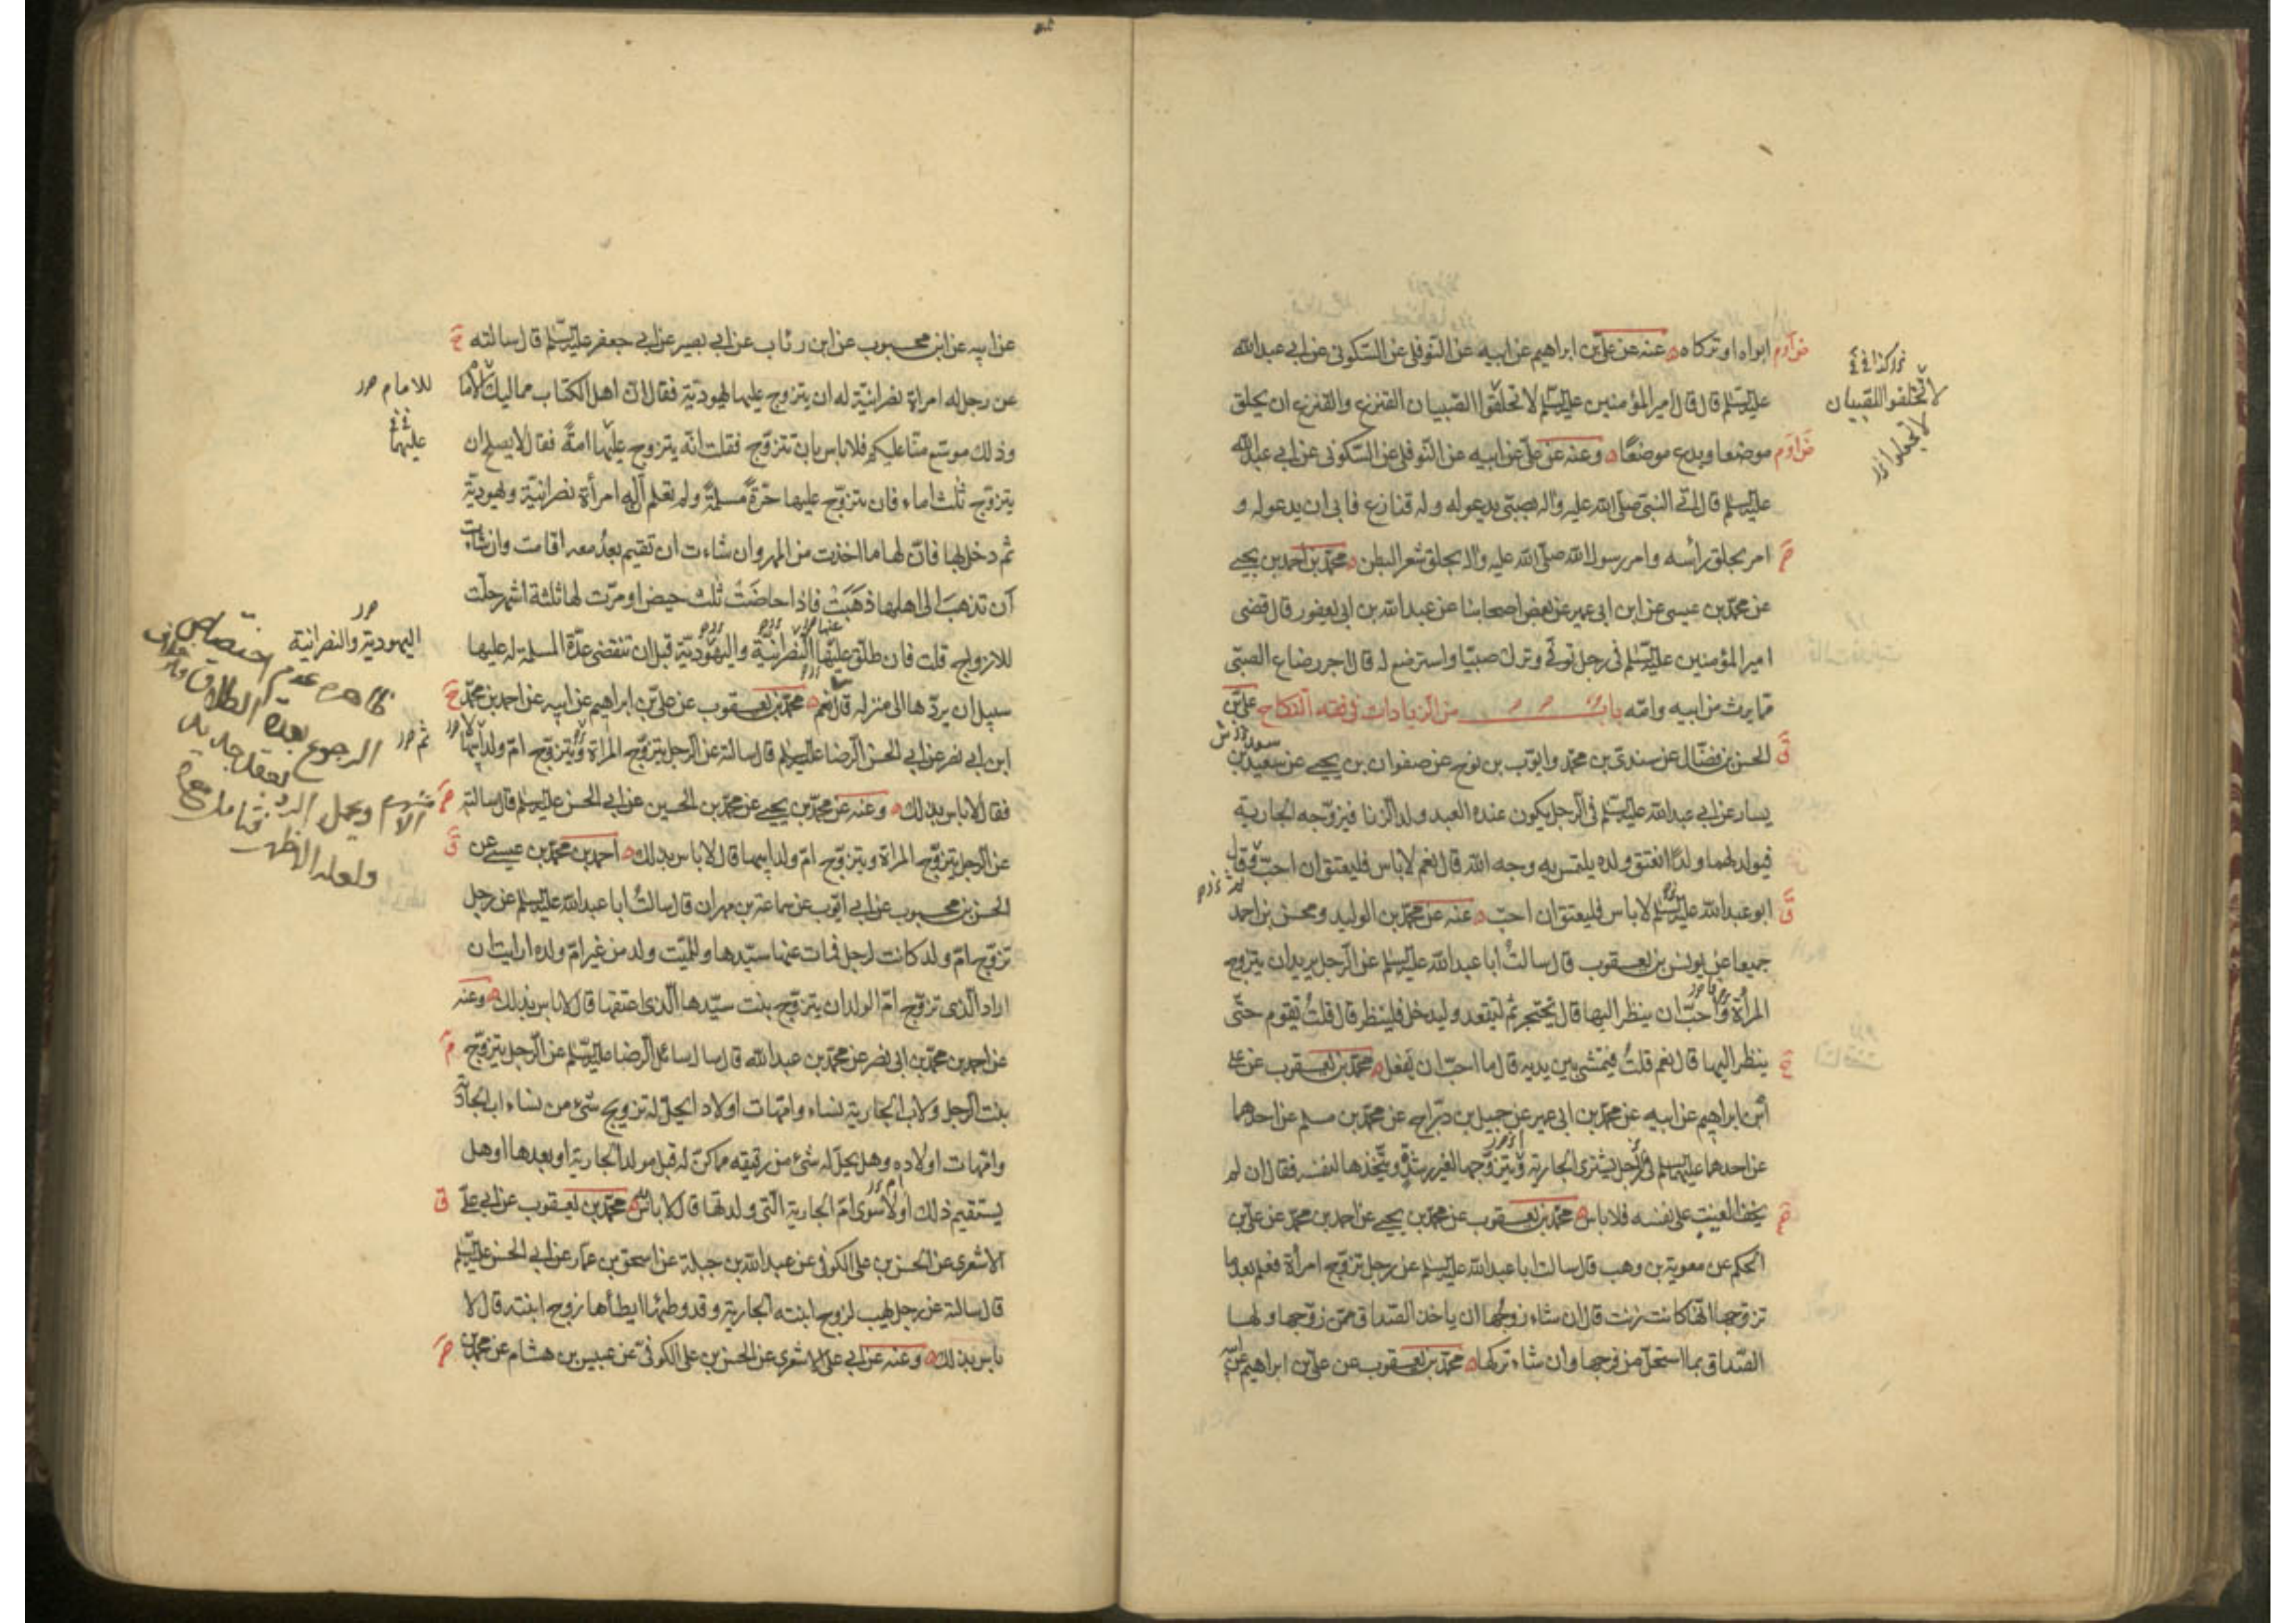 ابواه او تركاه عنه عن علي بن ابراهيم عن ابيه عن النوفلي عن السكوني عن ابي عبد الله
عليه السلم قال قال امير المؤمنين عليه السلم لا تحلقوا الصبيان القنزع والقنزع ان يحلق
موضعا ويدع موضعا وعنه عن علي عن ابيه عن النوفلي عن السكوني عن ابي عبد الله
عليه السلم قال اتى النبي صلى الله عليه واله بصبي يدعو له وله قنازع فابى ان يدعو له و
امر بحلق رأسه وامر رسول الله صلى الله عليه واله بحلق شعر البطن محمد بن احمد بن يحيى
عن محمد بن عيسى عن ابن ابي عمير عن بعض اصحابنا عن عبد الله بن ابي يعفور قال قضى
امير المؤمنين عليه السلم في رجل توفي وترك صبيا واسترضع له قال اجر رضاع الصبي
مما يرث من ابيه وامه باب من الزيادات في فقه النكاح علي بن
الحسن بن فضال عن سندي بن محمد وايوب بن نوح عن صفوان بن يحيى عن سعيد بن
يسار عن ابي عبد الله عليه السلم في الرجل يكون عنده العبد ولد الزنا فيزوجه الجارية
فيولد لهما ولد ايعتق ولده يلتمس به وجه الله قال نعم لا باس فليعتق ان احب وقال
ابو عبد الله عليه السلم لا باس فليعتق ان احب عنه عن محمد بن الوليد ومحسن بن احمد
جميعا عن يونس بن يعقوب قال سالت ابا عبد الله عليه السلم عن الرجل يريد ان يتزوج
المرأة واحب ان ينظر اليها قال تحتجز ثم لتقعد وليدخل فلينظر قال قلت تقوم حتى
ينظر اليها قال نعم قلت فتمشي بين يديه قال ما احب ان يفعل محمد بن يعقوب عن علي
ابن ابراهيم عن ابيه عن محمد بن ابي عمير عن جميل بن دراج عن محمد بن مسلم عن احدهما
عن احدهما عليهما السلم في الرجل يشتري الجارية ويتزوجها لغير رشدة ويتخذها لنفسه فقال ان لم
يخف العيب على نفسه فلا باس محمد بن يعقوب عن محمد بن يحيى عن احمد بن محمد عن علي بن
الحكم عن معوية بن وهب قال سالت ابا عبد الله عليه السلم عن رجل تزوج امرأة فعلم بعدما
تزوجها انها كانت زنت قال ان شاء زوجها ان ياخذ الصداق ممن زوجها ولها
الصداق بما استحل من فرجها وان شاء تركها محمد بن يعقوب عن علي بن ابراهيم عن
لا تحلقوا للصبيان
لا تجعلوا
عن ابيه عن ابن محبوب عن ابن رئاب عن ابي بصير عن ابي جعفر عليه السلم قال سالته
عن رجل له امراة نصرانية له ان يتزوج عليها يهودية فقال ان اهل الكتاب مماليك للامام
وذلك موسع منا عليكم فلا باس بان تتزوج فقلت انه يتزوج عليهما امة فقال لا يصلح ان
يتزوج ثلث اماء فان تزوج عليها حرة مسلمة ولم تعلم ان له امرأة نصرانية ويهودية
ثم دخل بها فان لها ما اخذت من المهر وان شاءت ان تقيم بعد معه اقامت وان شاءت
ان تذهب الى اهلها ذهبت فاذا حاضت ثلث حيض او مرت لها ثلثة اشهر حلت
للازواج قلت فان طلق عليها النصرانية واليهودية قبل ان تنقضي عدة المسلمة له عليها
سبيل ان يردها الى منزله قال نعم محمد بن يعقوب عن علي بن ابراهيم عن ابيه عن احمد بن محمد
ابن ابي نصر عن ابي الحسن الرضا عليه السلم قال سالته عن الرجل يتزوج المراة ويتزوج ام ولد ابيها
فقال لا باس بذلك وعنه عن محمد بن يحيى عن محمد بن الحسين عن ابي الحسن عليه السلم قال سالته
عن الرجل يتزوج المراة ويتزوج ام ولد ابيها قال لا باس بذلك احمد بن محمد بن عيسى عن
الحسن بن محبوب عن ابي ايوب عن سماعة بن مهران قال سالت ابا عبد الله عليه السلم عن رجل
تزوج ام ولد كانت لرجل فمات عنها سيدها وللميت ولد من غير ام ولده ارايت ان
اراد الذي تزوج ام الولد ان يتزوج بنت سيدها الذي اعتقها قال لا باس بذلك وعنه
عن احمد بن محمد بن ابي نصر عن محمد بن عبد الله قال سال سائل الرضا عليه السلم عن الرجل يتزوج
بنت الرجل ولاب الجارية نساء وامهات اولاد ايحل له تزويج شيء من نساء اب الجارية
وامهات اولاده وهل يحل له شيء من رقيقه مما كن له قبل مولد الجارية او بعدها او هل
يستقيم ذلك اولا سوى ام الجارية التي ولدتها قال لا باس محمد بن يعقوب عن ابي علي
الاشعري عن الحسن بن علي الكوفي عن عبد الله بن جبلة عن اسحق بن عمار عن ابي الحسن عليه السلم
قال سالته عن رجل يهب لزوج ابنته الجارية وقد وطئها ايطأها زوج ابنته قال لا
باس بذلك وعنه عن ابي علي الاشعري عن الحسن بن علي الكوفي عن عبيس بن هشام عن محمد بن
للامام
عليهما
اليهودية والنصرانية
ظاهره عدم اختصاص
الرجوع بعدة الطلاق
بعقد جديد
ويحمل الرد
ولعله الاظهر